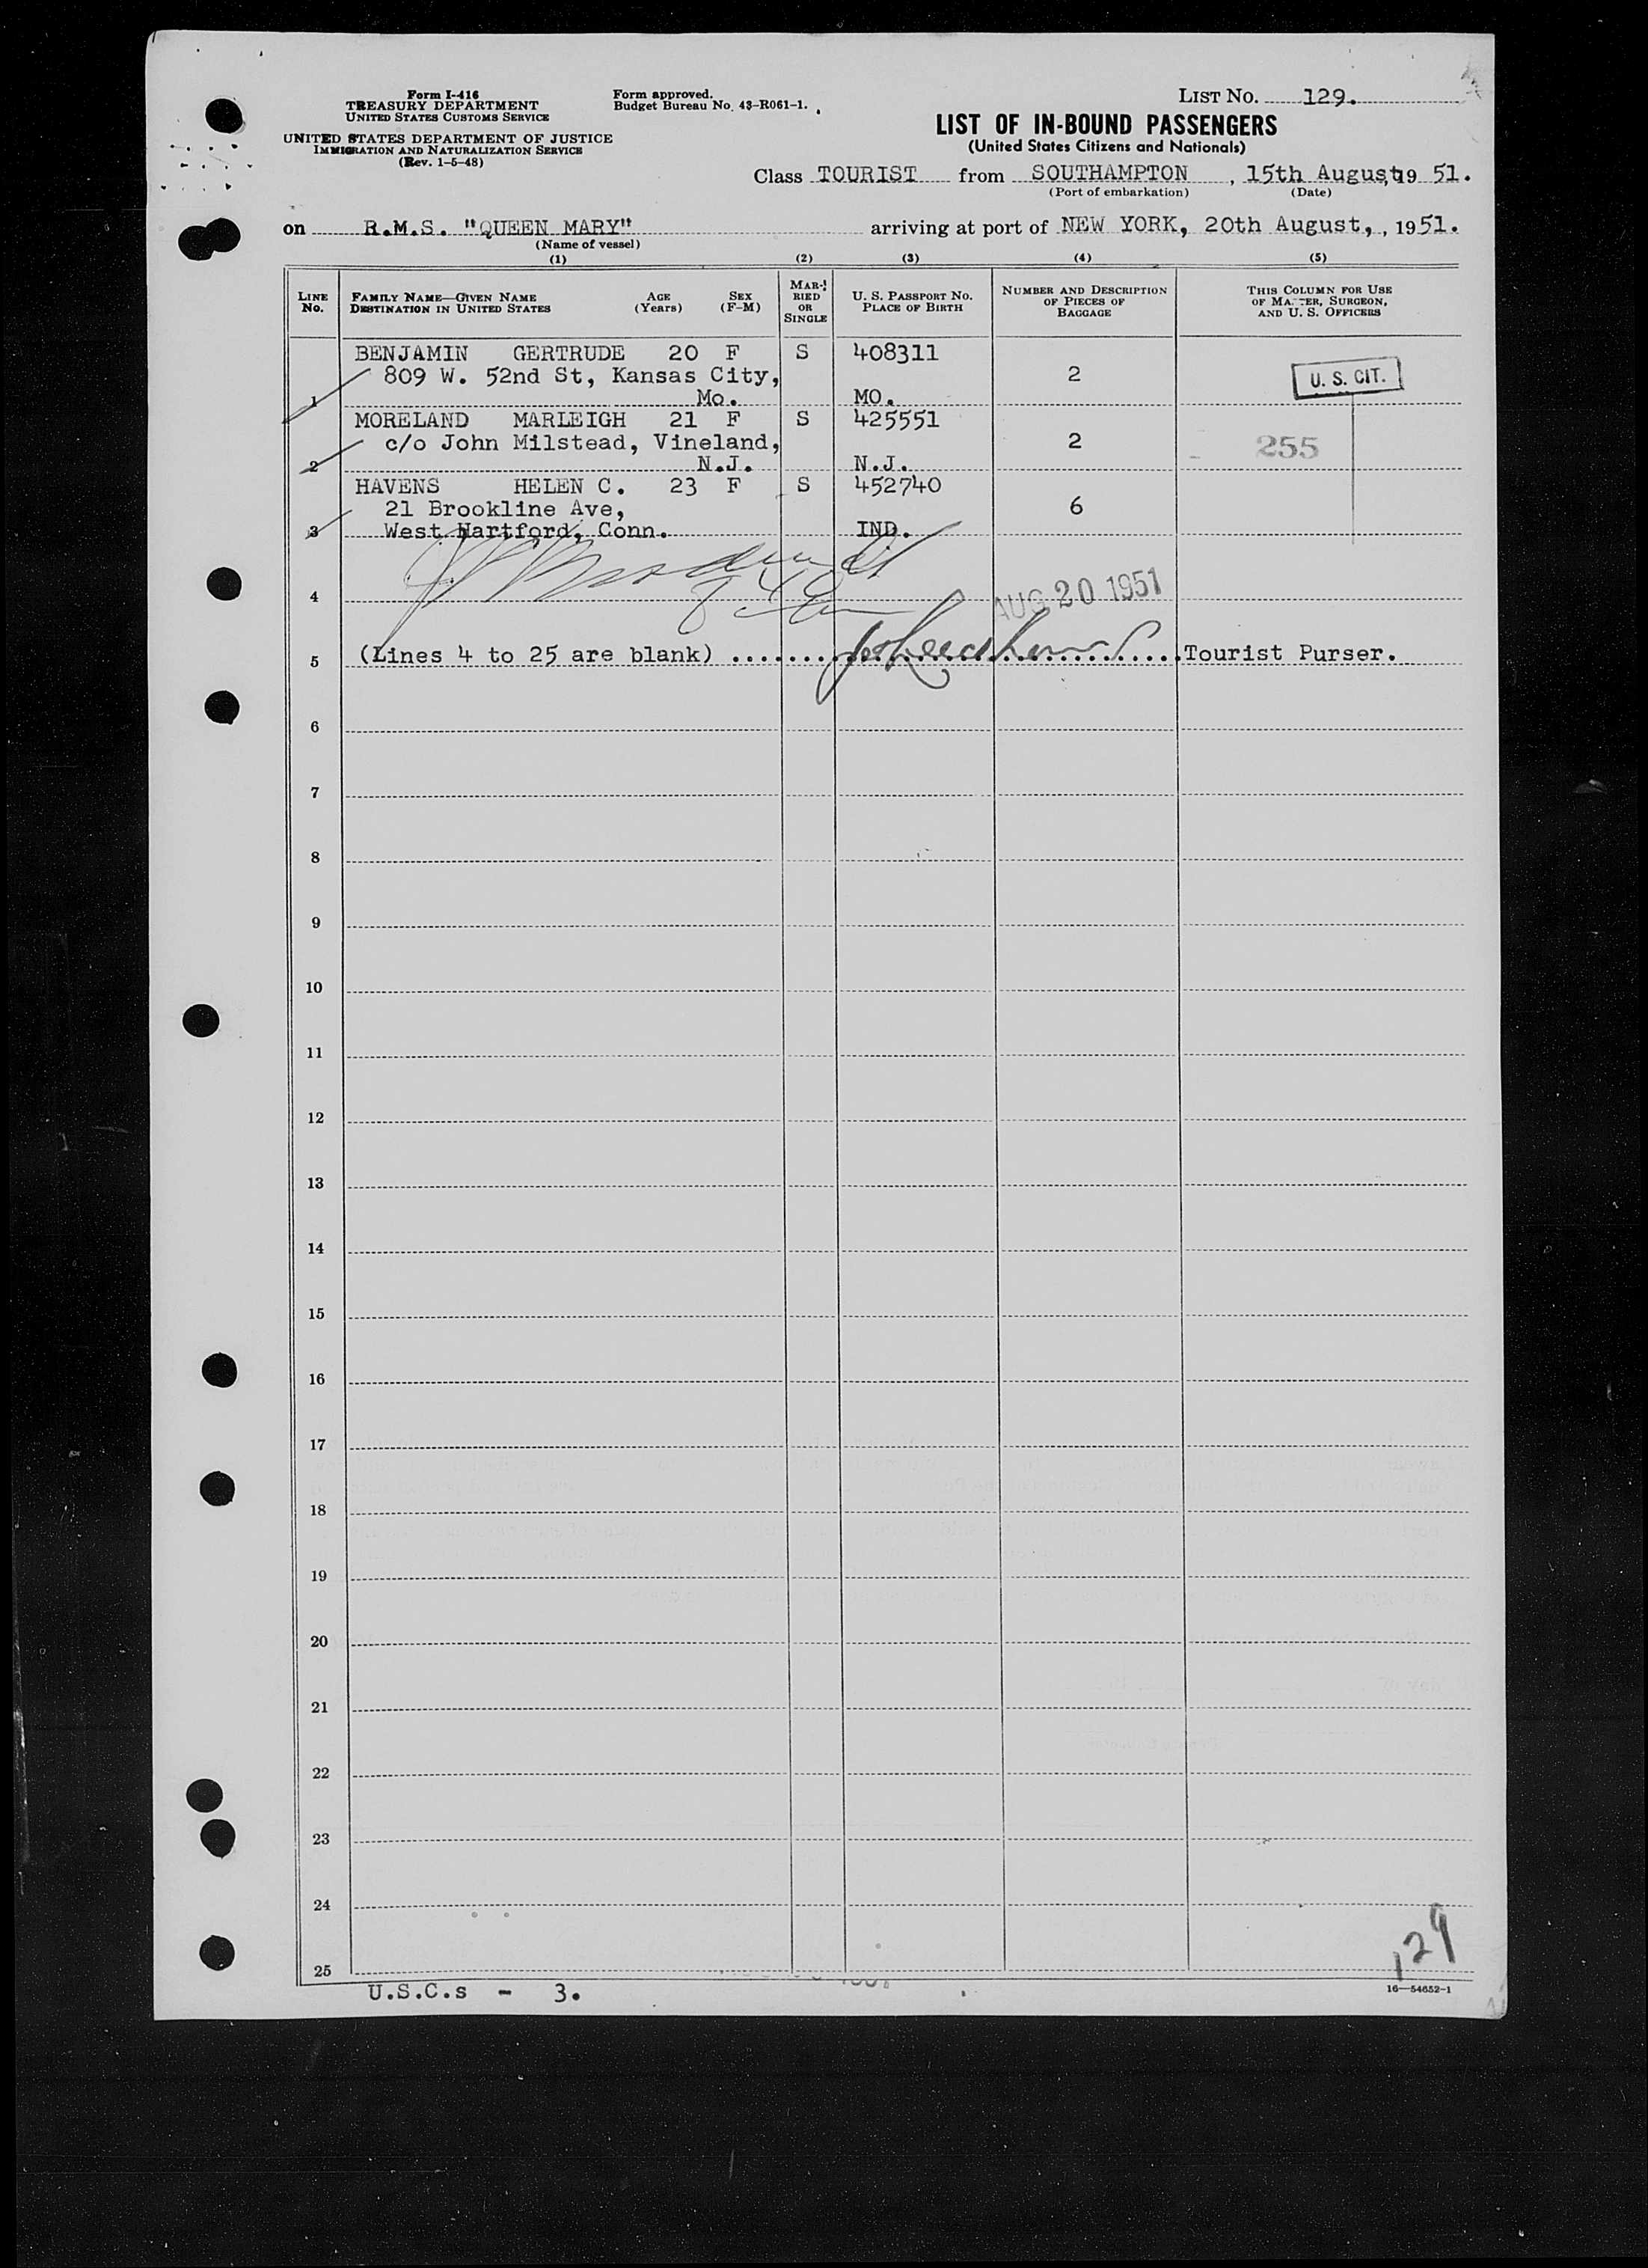 Form I-416
TREASURY DEPARTMENT
UNITED STATES CUSTOMS SERVICE
UNITED STATES DEPARTMENT OF JUSTICE
IMMIGRATION AND NATURALIZATION SERVICE
(Rev. 1-5-48)
Form approved.
Budget Bureau No. 43-R061-1.
LIST NO. 129.
LIST OF IN-BOUND PASSENGERS
(United States Citizens and Nationals)
Class TOURIST from SOUTHAMPTON, 15th August, 19 51.
(Port of embarkation) (Date)
on R.M.S. "QUEEN MARY" arriving at port of NEW YORK, 20th August, , 1951.
(Name of vessel)
(1) (2) (3) (4) (5)
LINE No.
FAMILY NAME—GIVEN NAME AGE SEX
DESTINATION IN UNITED STATES (Years) (F-M)
MARRIED OR SINGLE
U. S. PASSPORT NO.
PLACE OF BIRTH
NUMBER AND DESCRIPTION
OF PIECES OF
BAGGAGE
THIS COLUMN FOR USE
OF MASTER, SURGEON,
AND U. S. OFFICERS
BENJAMIN GERTRUDE 20 F S 408311
809 W. 52nd St, Kansas City, 2 U. S. CIT.
1 Mo. MO.
MORELAND MARLEIGH 21 F S 425551
c/o John Milstead, Vineland, 2 255
2 N.J. N.J.
HAVENS HELEN C. 23 F S 452740
21 Brookline Ave, 6
3 West Hartford, Conn. IND.
4 AUG 20 1951
5 (Lines 4 to 25 are blank) .......... Tourist Purser.
6
7
8
9
10
11
12
13
14
15
16
17
18
19
20
21
22
23
24
25
129
U.S.C.s - 3.
16—54652-1